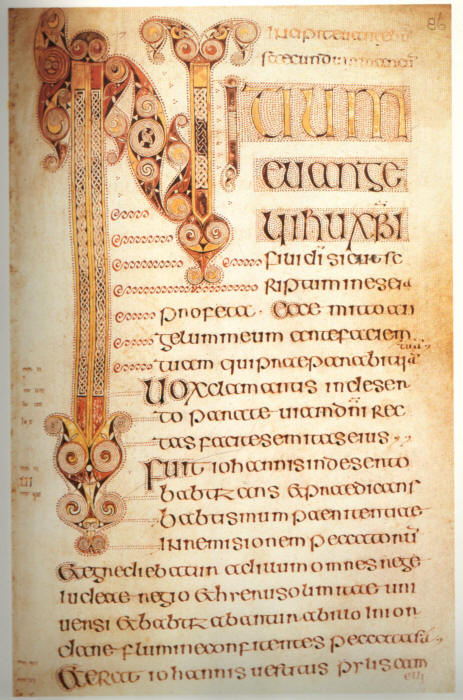 86
INITIUM
euange
lii ihu xpi
fili di sicut sc
riptum in esaia
profeta · Ecce mitto an
gelum meum ante faciem
tuam qui praeparabit uiā
tuā
Uox clamantis in deser
to parate uiam dni rec
tas facite semitas eius
Fuit iohannis in deserto
babtizans & praedicans
babtismum paenitentiae
in remisionem peccatorū
& egrediebatur ad illum omnes rege
iudeae regio & hierusolimitae uni
uersi & babtizabantur ab illo in ior
dane flumine confitentes peccata sua
& erat iohannis uestitus pylis cam
eli